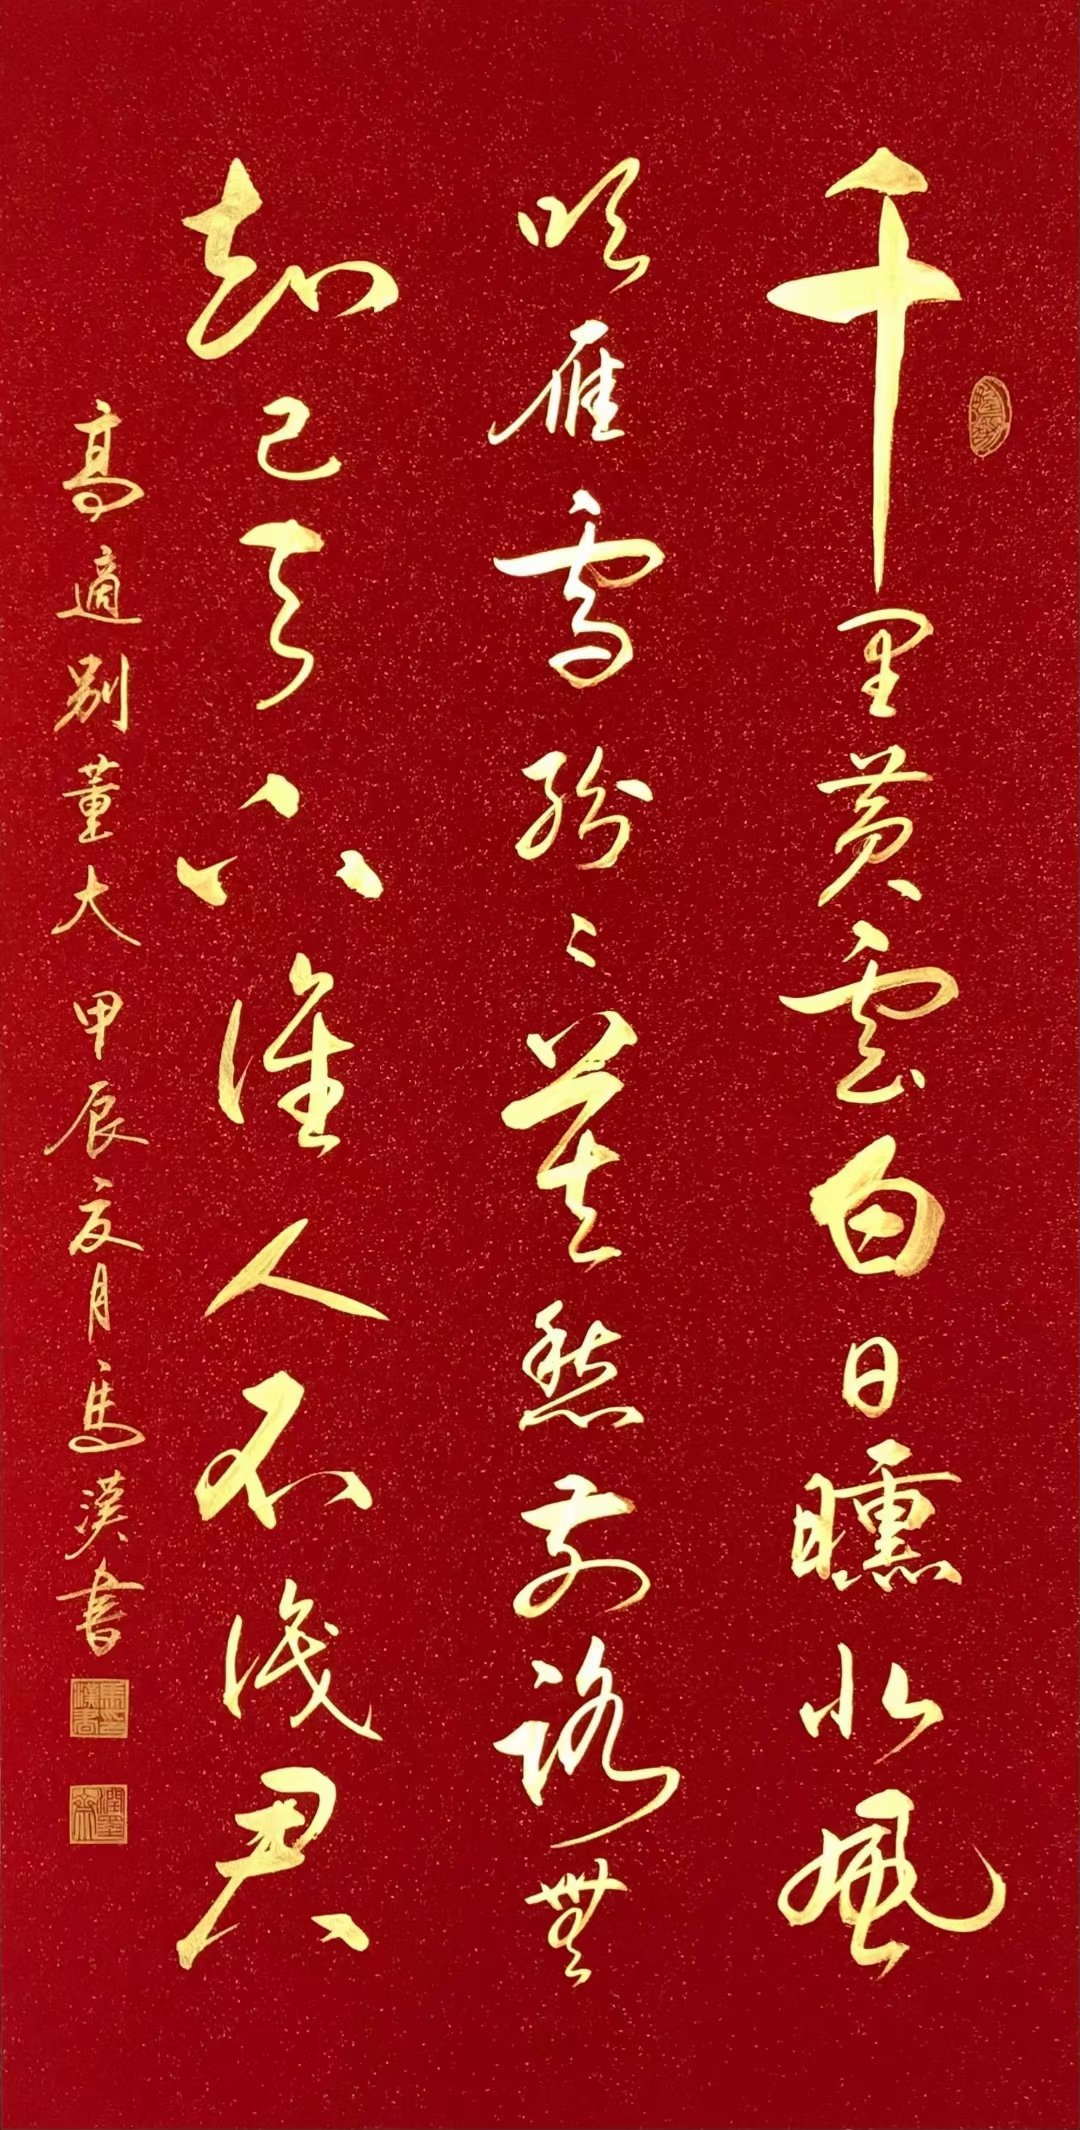 千里黄雲白日曛北風
吹雁雪紛々莫愁前路無
知己天下誰人不識君
高適别董大 甲辰夏月馬漢書